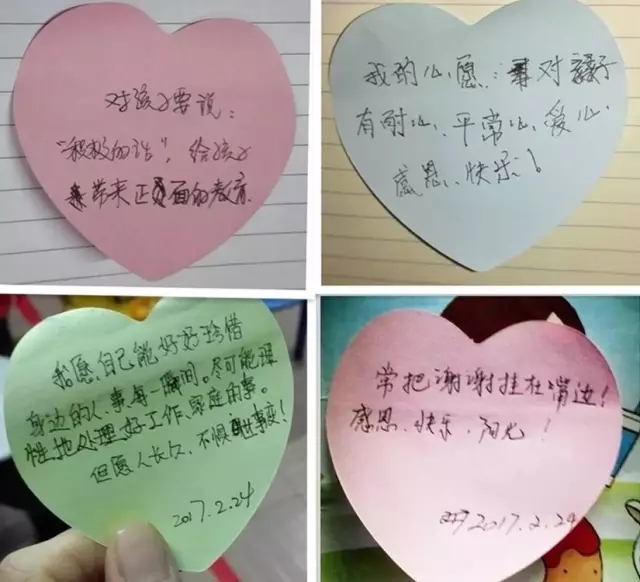 对孩子要说：
"积极的话"，给孩子
带来正面的教育.
我的心愿：对孩子
有耐心、平常心、爱心、
感恩、快乐！
我愿自己能好好珍惜
身边的人、事、每一瞬间。尽可能理
性地处理好工作、家庭的事。
但愿人长久，不惧世事变！
2017.2.24
常把谢谢挂在嘴边！
感恩、快乐、阳光！
2017.2.24